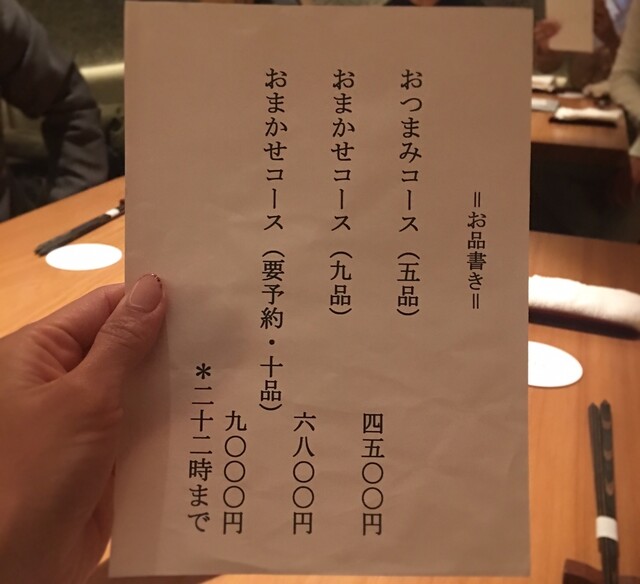 ＝お品書き＝
おつまみコース（五品）
四五〇〇円
おまかせコース（九品）
六八〇〇円
おまかせコース（要予約・十品）
九〇〇〇円
＊二十二時まで